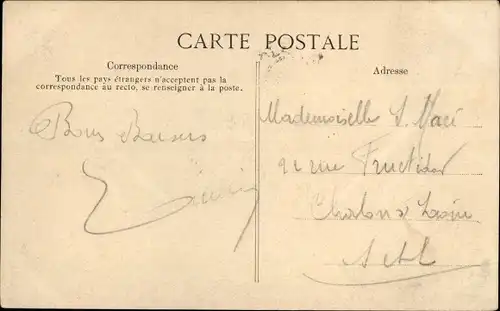 CARTE POSTALE
Correspondance
Tous les pays étrangers n'acceptent pas la
correspondance au recto, se renseigner à la poste.
Bons Baisers
Adresse
Mademoiselle S. Macé
rue Fructidor
Chalon s Saône
S et L